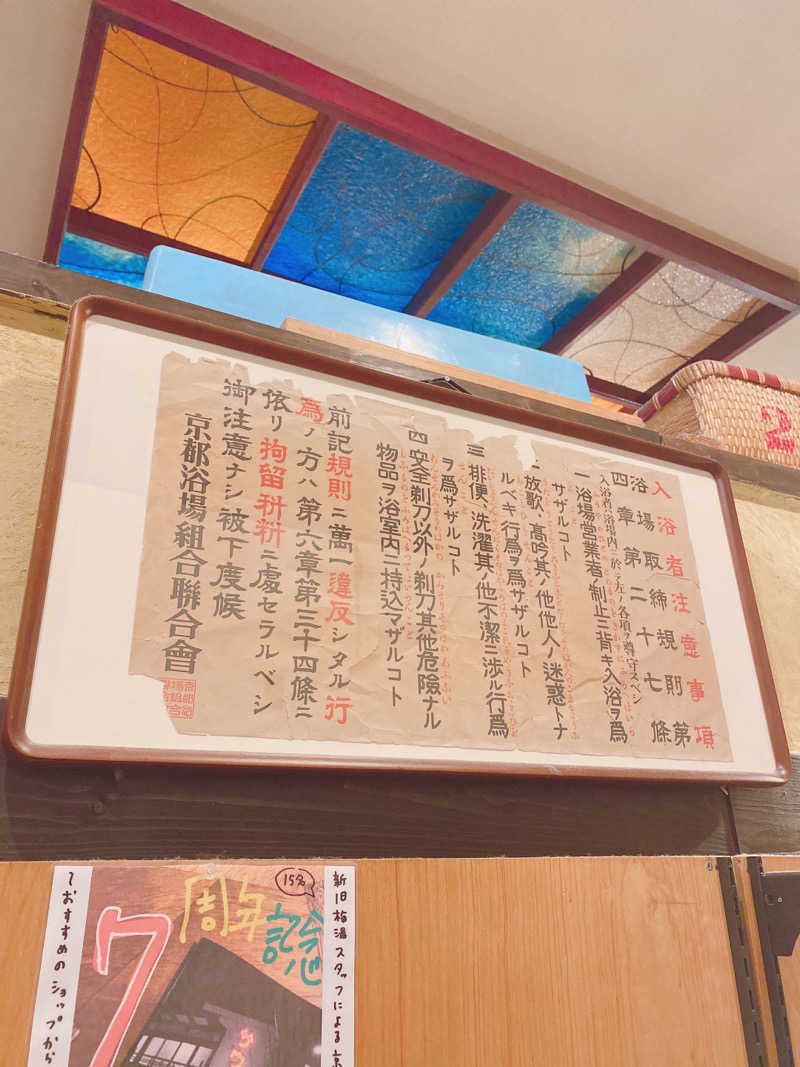 入浴者注意事項
浴場取締規則第
四章第二十七條
入浴者ハ浴場内ニ於テ左ノ各項ヲ遵守スベシ
一 浴場営業者ノ制止ニ背キ入浴ヲ爲
サザルコト
二 放歌、高吟其ノ他他人ノ迷惑トナ
ルベキ行爲ヲ爲サザルコト
三 排便、洗濯其ノ他不潔ニ渉ル行爲
ヲ爲サザルコト
四 安全剃刀以外ノ剃刀其他危險ナル
物品ヲ浴室内ニ持込マザルコト
前記規則ニ萬一違反シタル行
爲ノ方ハ第六章第三十四條ニ
依リ拘留科料ニ處セラルベシ
御注意ナシ被下度候
京都浴場組合聯合會
2
15%
7周年
記念
新旧梅湯スタッフによる京
ておすすめのショップから